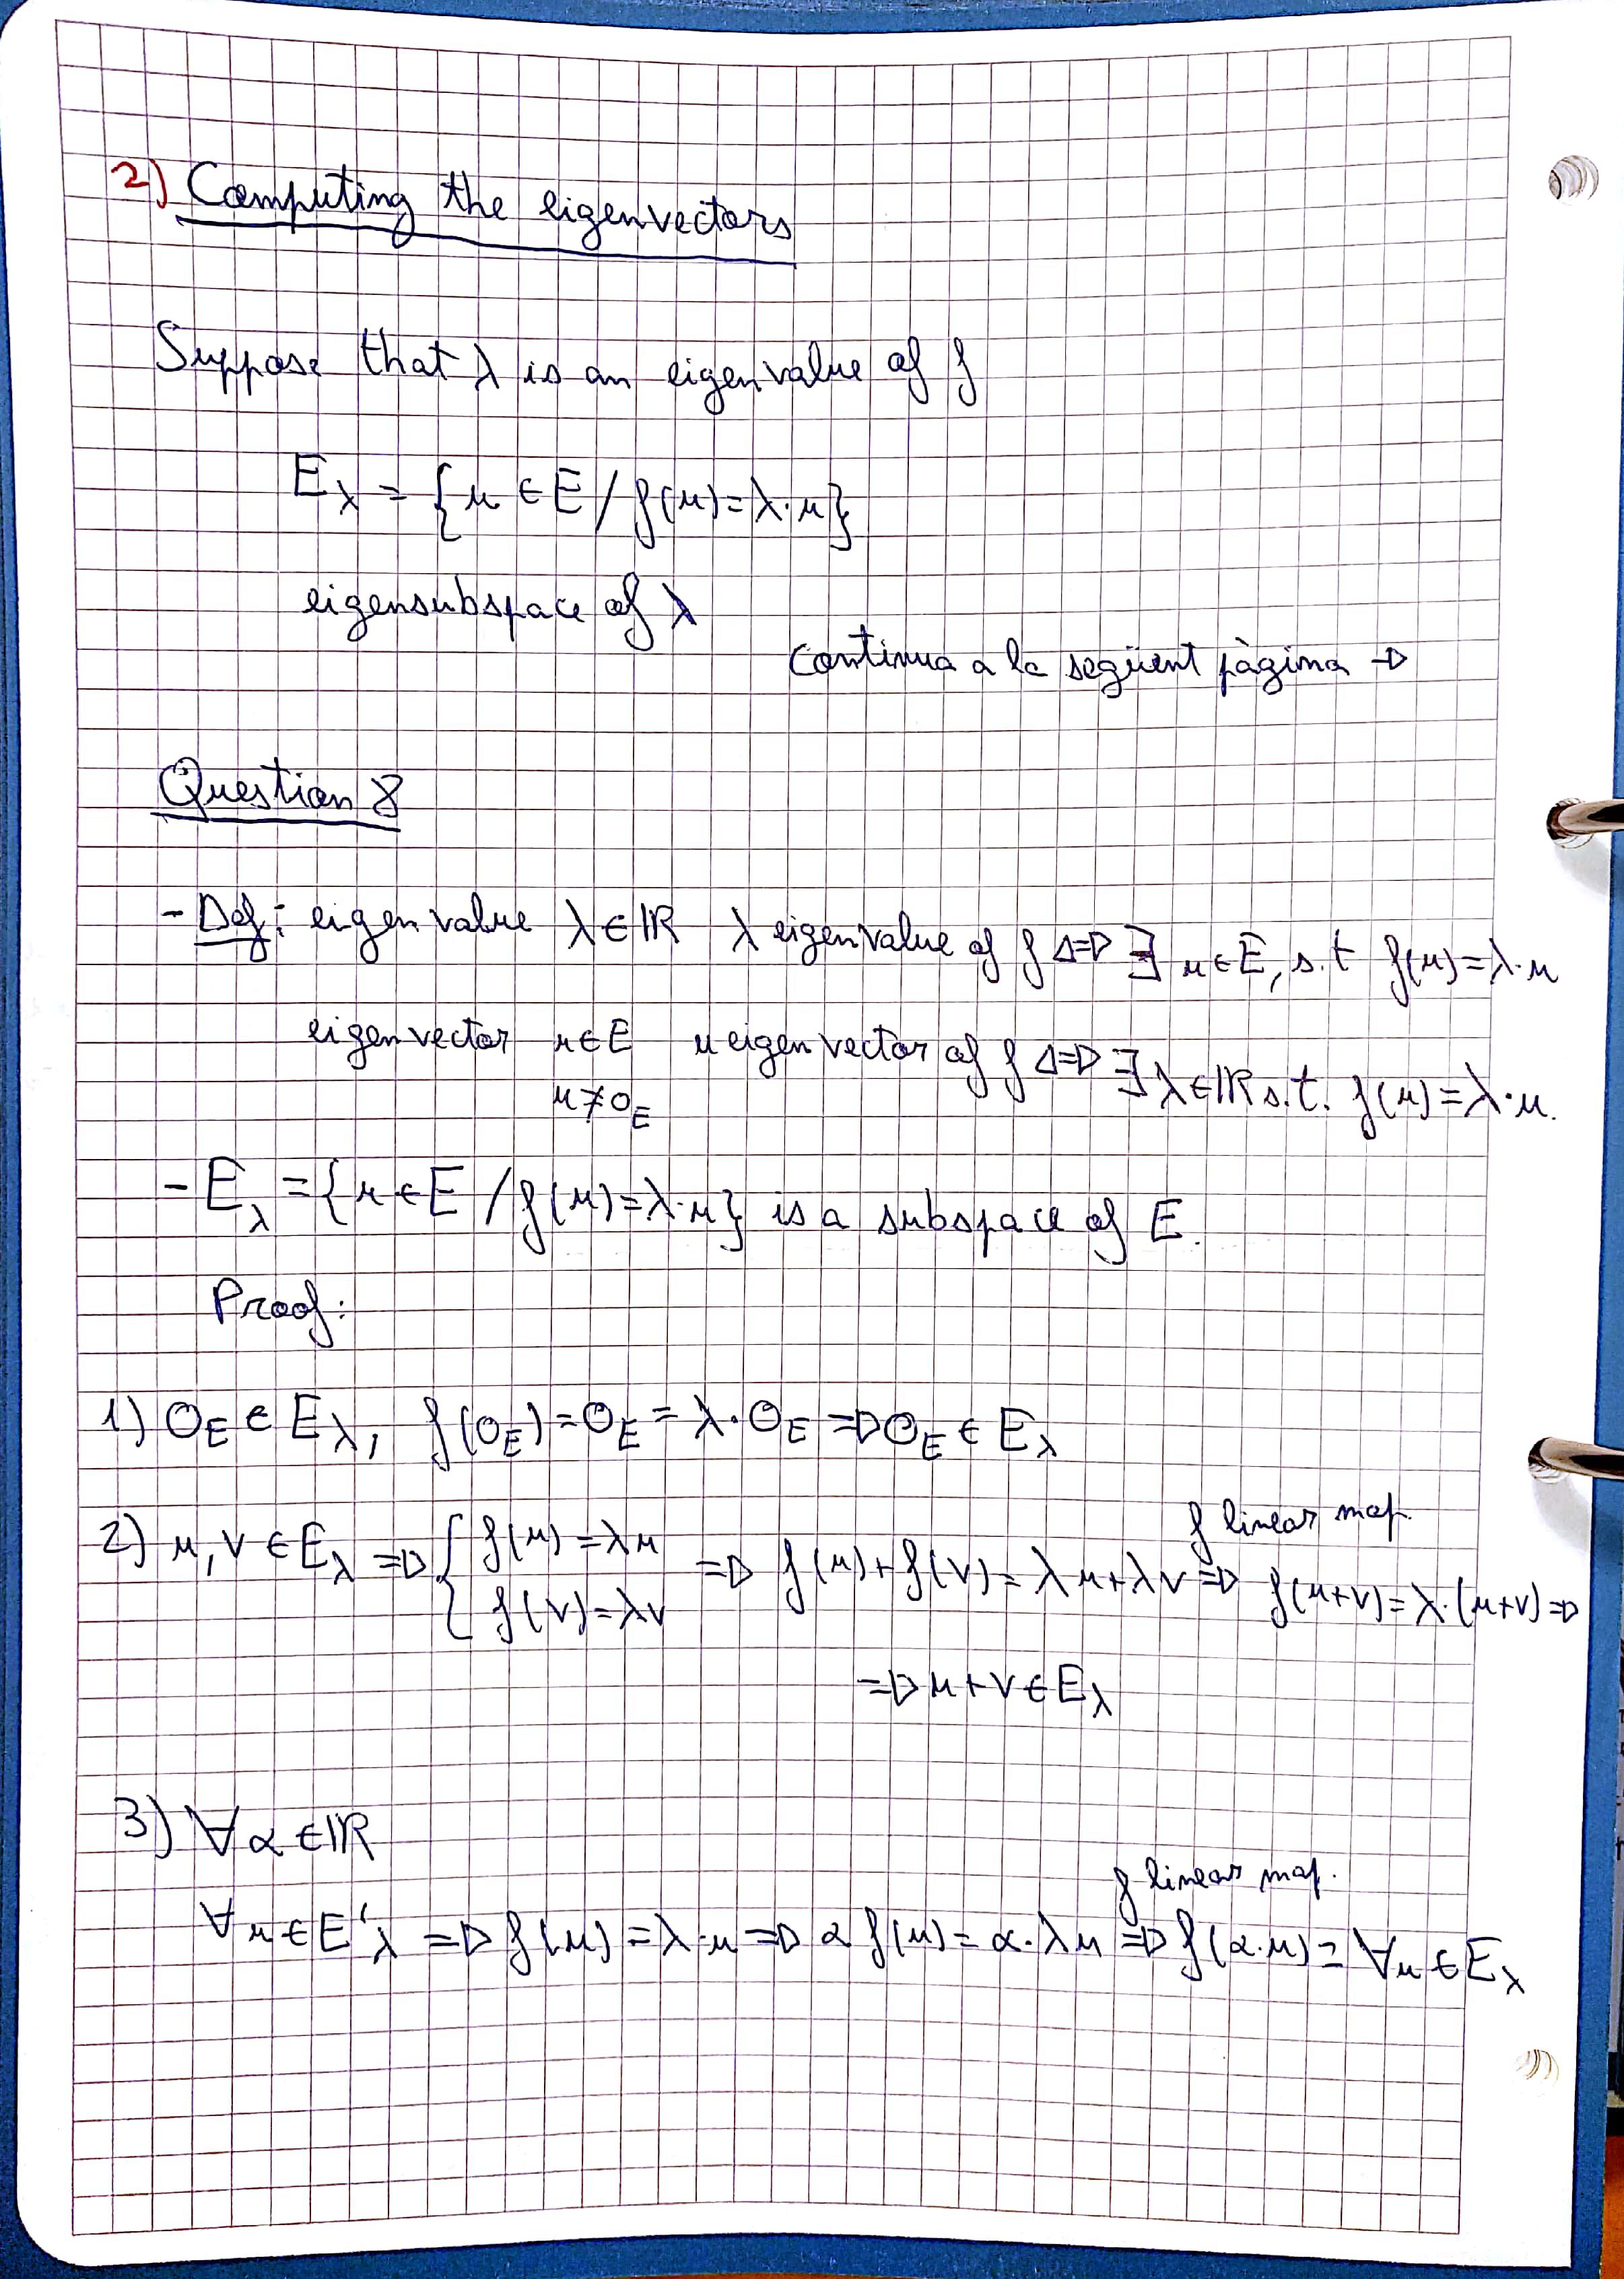 2) Computing the eigenvectors
Suppose that λ is an eigenvalue of f
E_λ = {u ∈ E / f(u) = λ·u}
eigensubspace of λ
Continua a la següent pàgina ⇒
Question 8
- Def: eigenvalue λ ∈ ℝ λ eigenvalue of f ⇔ ∃ u ∈ E, s.t f(u) = λ·u
eigenvector u ∈ E u eigenvector of f ⇔ ∃ λ ∈ ℝ s.t. f(u) = λ·u.
u ≠ 0_E
- E_λ = {u ∈ E / f(u) = λ·u} is a subspace of E.
Proof:
1) 0_E ∈ E_λ, f(0_E) = 0_E = λ·0_E ⇒ 0_E ∈ E_λ
f linear map.
2) u, v ∈ E_λ ⇒ { f(u) = λu ⇒ f(u) + f(v) = λu + λv ⇒ f(u+v) = λ·(u+v) ⇒
f(v) = λv
⇒ u + v ∈ E_λ
3) ∀ α ∈ ℝ
f linear map.
∀ u ∈ E'_λ ⇒ f(u) = λ·u ⇒ α f(u) = α·λu ⇒ f(α·u) = ∀u ∈ E_λ